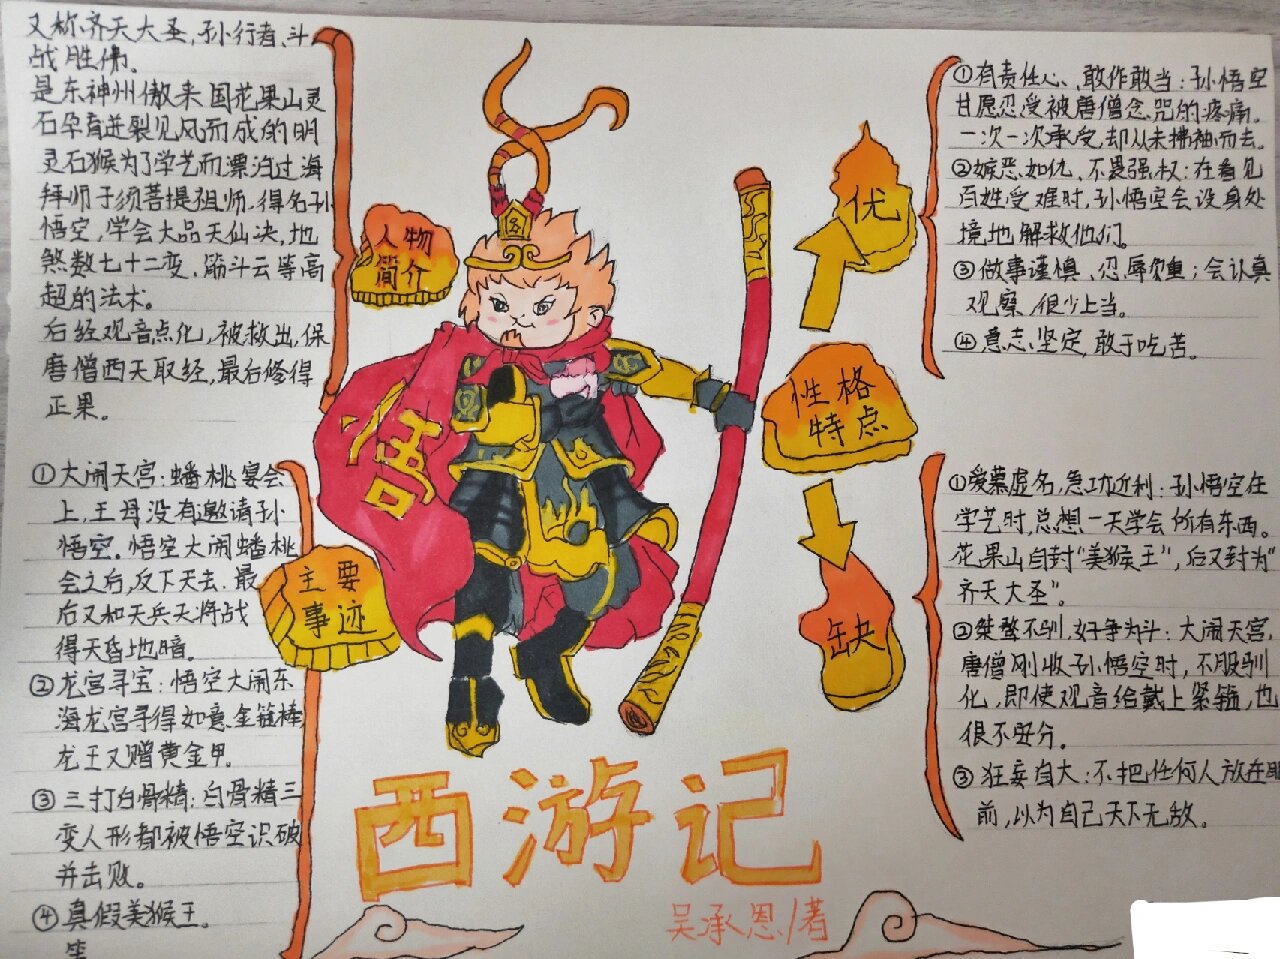 又称齐天大圣,孙行者、斗
战胜佛。
是东神州傲来国花果山灵
石孕育迸裂见风而成的明
灵石猴为了学艺而漂泊过海
拜师于须菩提祖师.得名孙
悟空,学会大品天仙决,地
煞数七十二变,筋斗云等高
超的法术。
后经观音点化,被救出,保
唐僧西天取经,最后修得
正果。
人物
简介
①大闹天宫:蟠桃宴会
上,王母没有邀请孙
悟空.悟空大闹蟠桃
会之后,反下天去.最
后又和天兵天将战
得天昏地暗。
②龙宫寻宝:悟空大闹东
海龙宫寻得如意金箍棒,
龙王又赠黄金甲。
③三打白骨精:白骨精三
变人形都被悟空识破
并击败。
④真假美猴王。
主要
事迹
悟
西游记
吴承恩/著
性格
特点
优
①有责任心、敢作敢当:孙悟空
甘愿忍受被唐僧念咒的疼痛.
一次一次承受,却从未拂袖而去。
②嫉恶如仇、不畏强权:在看见
百姓受难时,孙悟空会设身处
境地解救他们。
③做事谨慎、忍辱负重;会认真
观察,很少上当。
④意志坚定,敢于吃苦。
缺
①爱慕虚名,急功近利:孙悟空在
学艺时,总想一天学会所有东西。
花果山自封"美猴王",后又封为"
齐天大圣"。
②桀骜不驯,好争为斗:大闹天宫,
唐僧刚收孙悟空时,不服驯
化,即使观音给戴上紧箍,也
很不安分。
③狂妄自大:不把任何人放在眼
前,以为自己天下无敌。